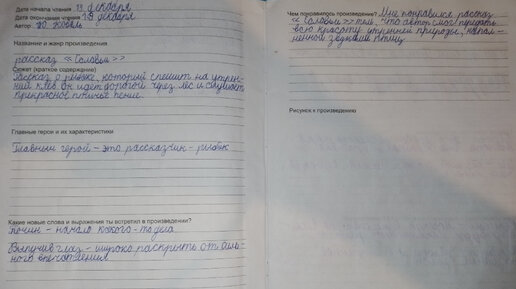 Дата начала чтения 13 декабря
Дата окончания чтения декабря
Автор: Ю. Коваль
Название и жанр произведения
рассказ «Соловьи»
Сюжет (краткое содержание)
Рассказ о рыбаке, который спешит на утрен-
ний клёв. Он идет дорогой через лес и слушает
прекрасное птичье пение.
Главные герои и их характеристики
Главный герой – это рассказчик – рыбак
Какие новые слова и выражения ты встретил в произведении?
Почин – начало какого-то дела
Выпучив глаз – широко раскрыть от силь-
ного впечатления
Чем понравилось произведение? Мне понравился рассказ
«Соловьи» тем, что автор смог передать
всю красоту утренней природы, напол-
ненной звуками птиц.
Рисунок к произведению